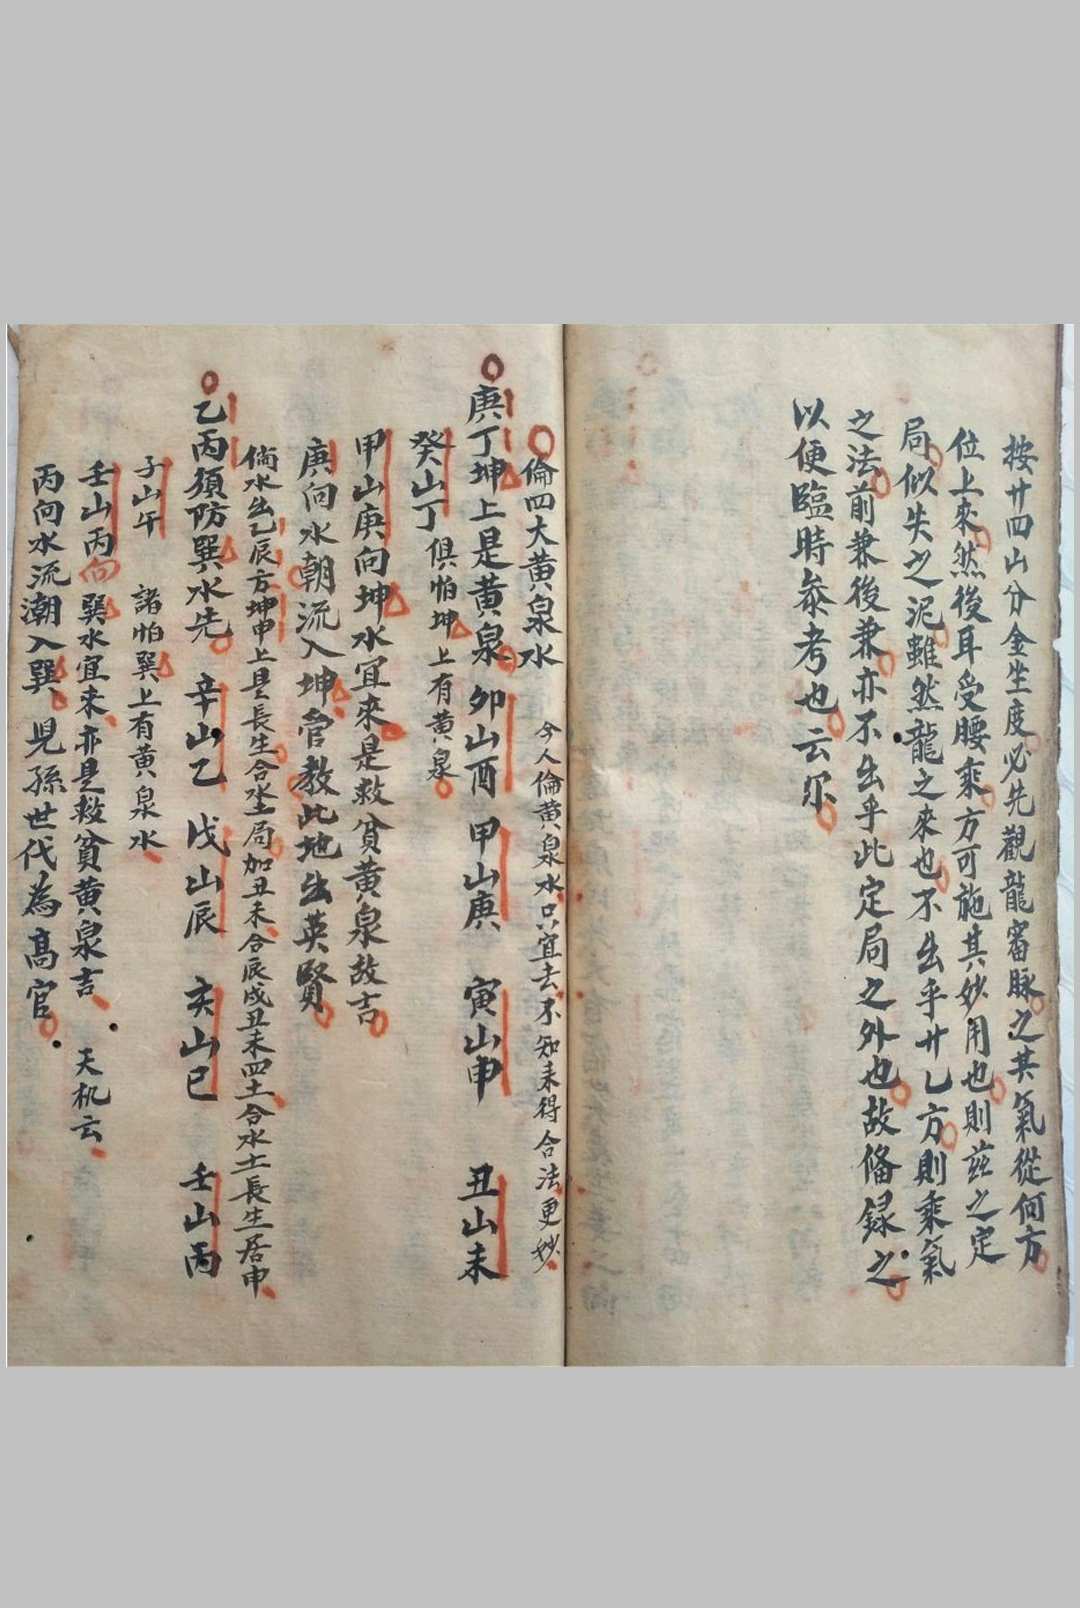 按廿四山分金坐度必先觀龍審脉之其氣從何方
位上來然後耳受腰乘方可施其妙用也則茲之定
局似失之泥雖然龍之來也不出乎廿乚方則乘氣
之法前兼後兼亦不出乎此定局之外也故俻録之
以便臨時叅考也云尔
倫四大黃泉水 今人倫黃泉水只宜去不知来得合法更妙
庚丁坤上是黃泉 卯山酉 甲山庚 寅山申 丑山未
癸山丁 俱怕坤上有黃泉
甲山庚向坤水宜來是救貧黃泉故吉
庚向水朝流入坤管教此地出英賢
倘水出乙辰方坤申上是長生合水土局加丑未合辰戌丑未四土合水土長生居申
乙丙須防巽水先 辛山乙 戌山辰 亥山巳 壬山丙
子山午 諸怕巽上有黃泉水
壬山丙向巽水宜来亦是救貧黃泉吉 天机云
丙向水流潮入巽 児孫世代為高官